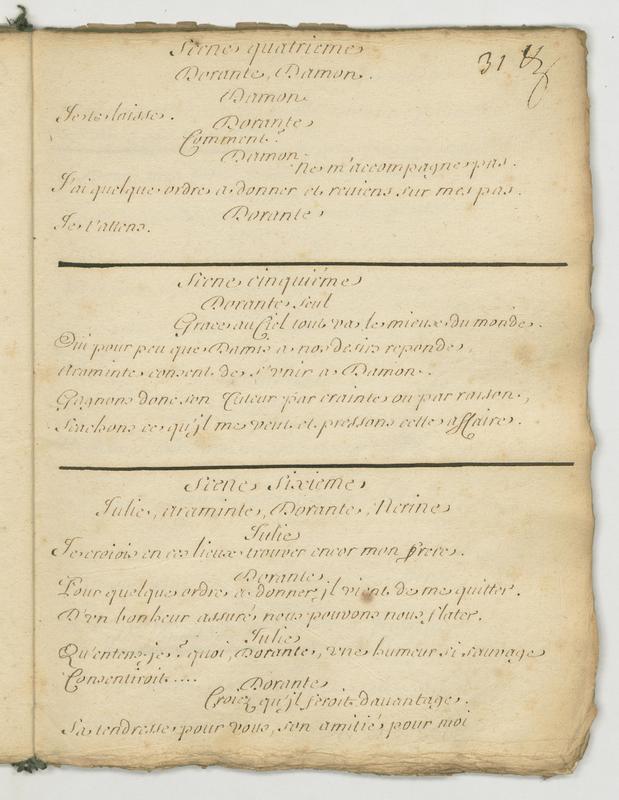 31
Scene quatrieme
Dorante, Damon.
Damon
Je te laisse.
Dorante
Comment?
Damon
Ne m'accompagne pas.
J'ai quelque ordre a donner et reviens sur mes pas.
Dorante
Je t'attens.
Scene cinquiéme
Dorante seul
Grace au Ciel tout va le mieux du monde.
Oui pour peu que Damis a nos desirs reponde,
Araminte consent de s'vnir a Damon.
Gagnons donc son Tuteur par crainte ou par raison,
Scachons ce qu'jl me veut et pressons cette affaire.
Scene Sixieme
Julie, Araminte, Dorante, Nerine
Julie
Je croiois en ces lieux trouver encor mon frere.
Dorante
Pour quelque ordre a donner jl vient de me quitter.
D'vn bonheur assuré nous pouvons nous flater.
Julie
Qu'entens-je? quoi, Dorante, vne humeur si sauvage
Consentiroit....
Dorante
Croiez qu'jl feroit davantage.
Sa tendresse pour vous, son amitié pour moi